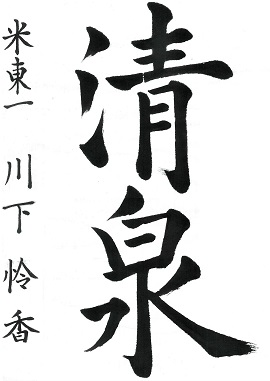 清泉
米東一 川下怜香